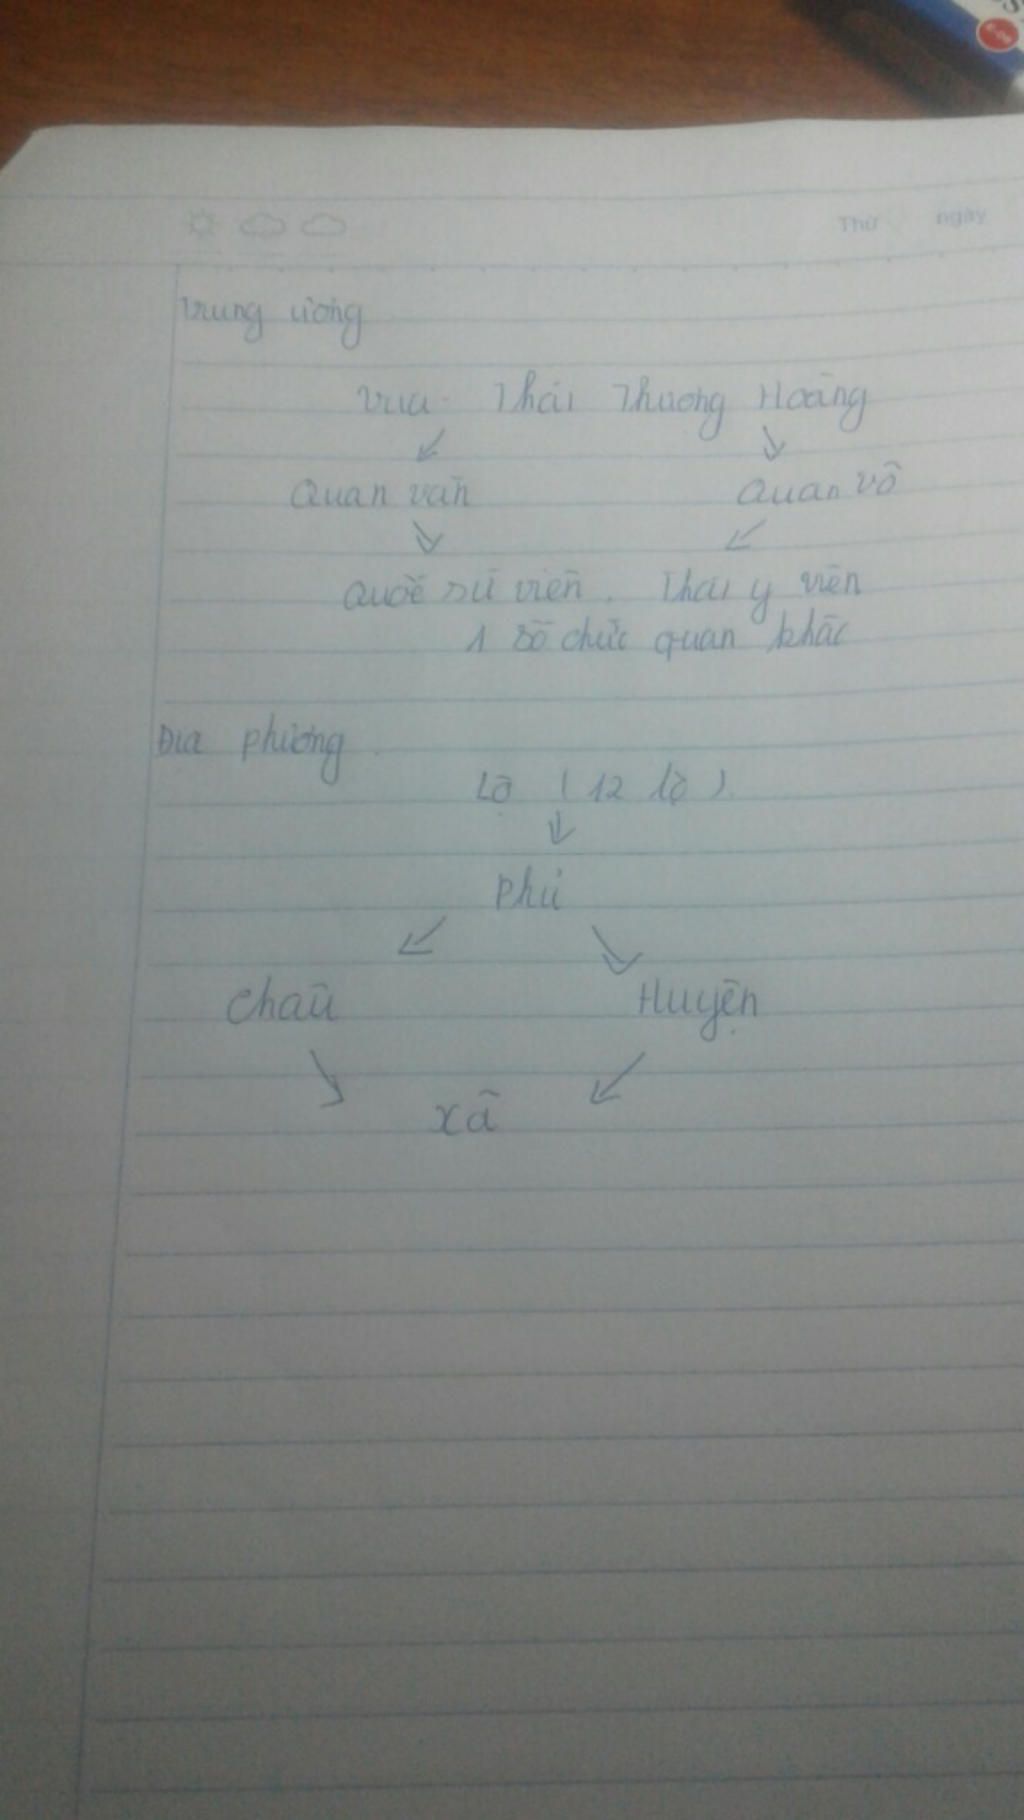 Thứ ngày
Trung ương
Vua - Thái Thượng Hoàng
Quan văn Quan võ
Quốc sử viện, Thái y viện
1 số chức quan khác
Địa phương
Lộ (12 lộ)
Phủ
Châu Huyện
Xã